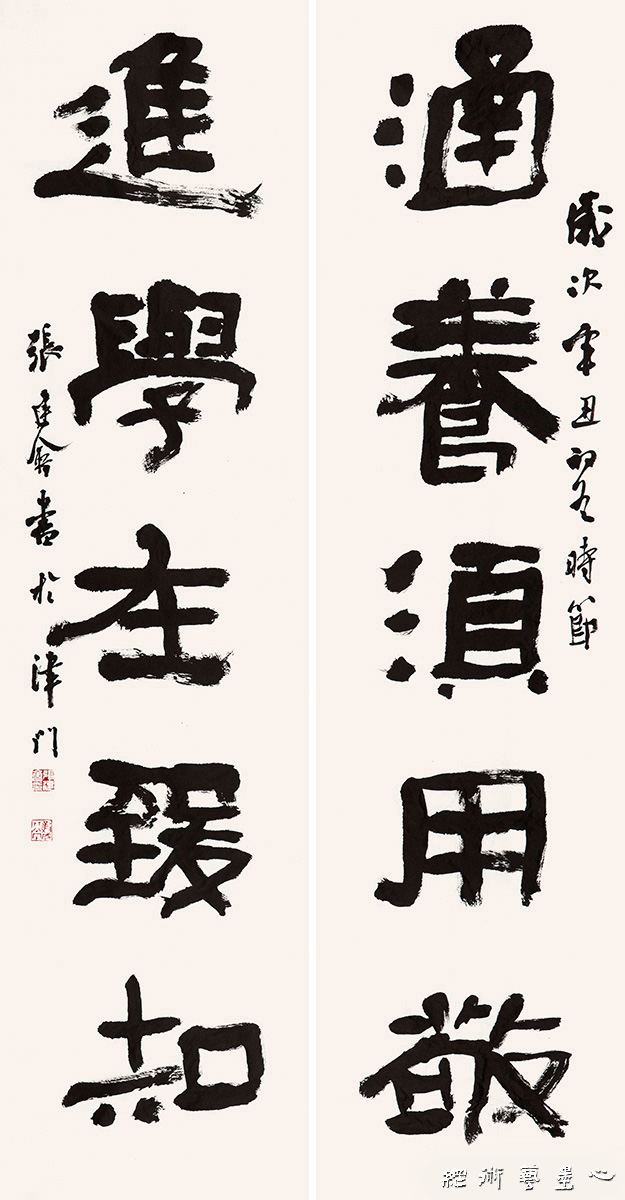 歲次辛丑初冬時節
涵養須用敬
進學在致知
張建會書於津門
心畫藝術